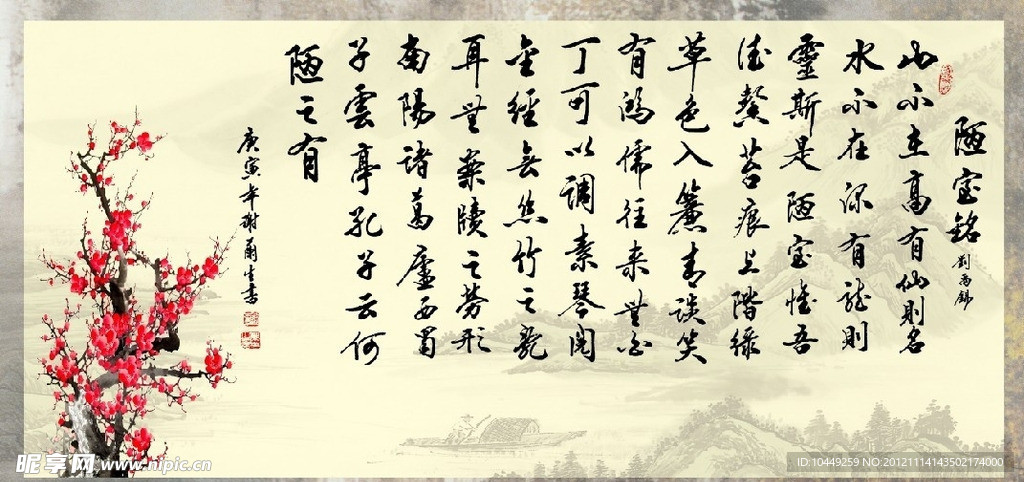 陋室銘
劉禹錫
山不在高有仙則名
水不在深有龍則
靈斯是陋室惟吾
德馨苔痕上階綠
草色入簾青談笑
有鴻儒往來無白
丁可以調素琴閱
金經無絲竹之亂
耳無案牘之勞形
南陽諸葛廬西蜀
子雲亭孔子云何
陋之有
庚寅年謝爾書
昵享网 www.nipic.cn
ID:10449259 NO:20121114143502174000